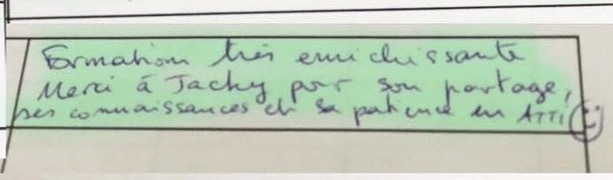 Formation très enrichissante
Merci à Jacky pour son partage,
ses connaissances et sa patience en ATTI